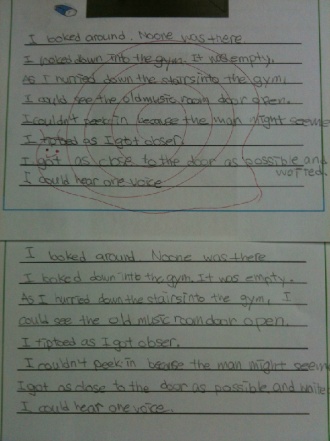 I looked around. Noone was there
I looked down into the gym. It was empty.
As I hurried down the stairs into the gym,
I could see the old music room door open.
I couldn't peek in because the man might seeme
I tiptoed as I got closer.
I got as close to the door as possible and
waited.
I could hear one voice
I looked around. Noone was there
I looked down into the gym. It was empty.
As I hurried down the stairs into the gym, I
could see the old music room door open.
I tiptoed as I got closer.
I couldn't peek in because the man might seem
I got as close to the door as possible and waite
I could hear one voice.